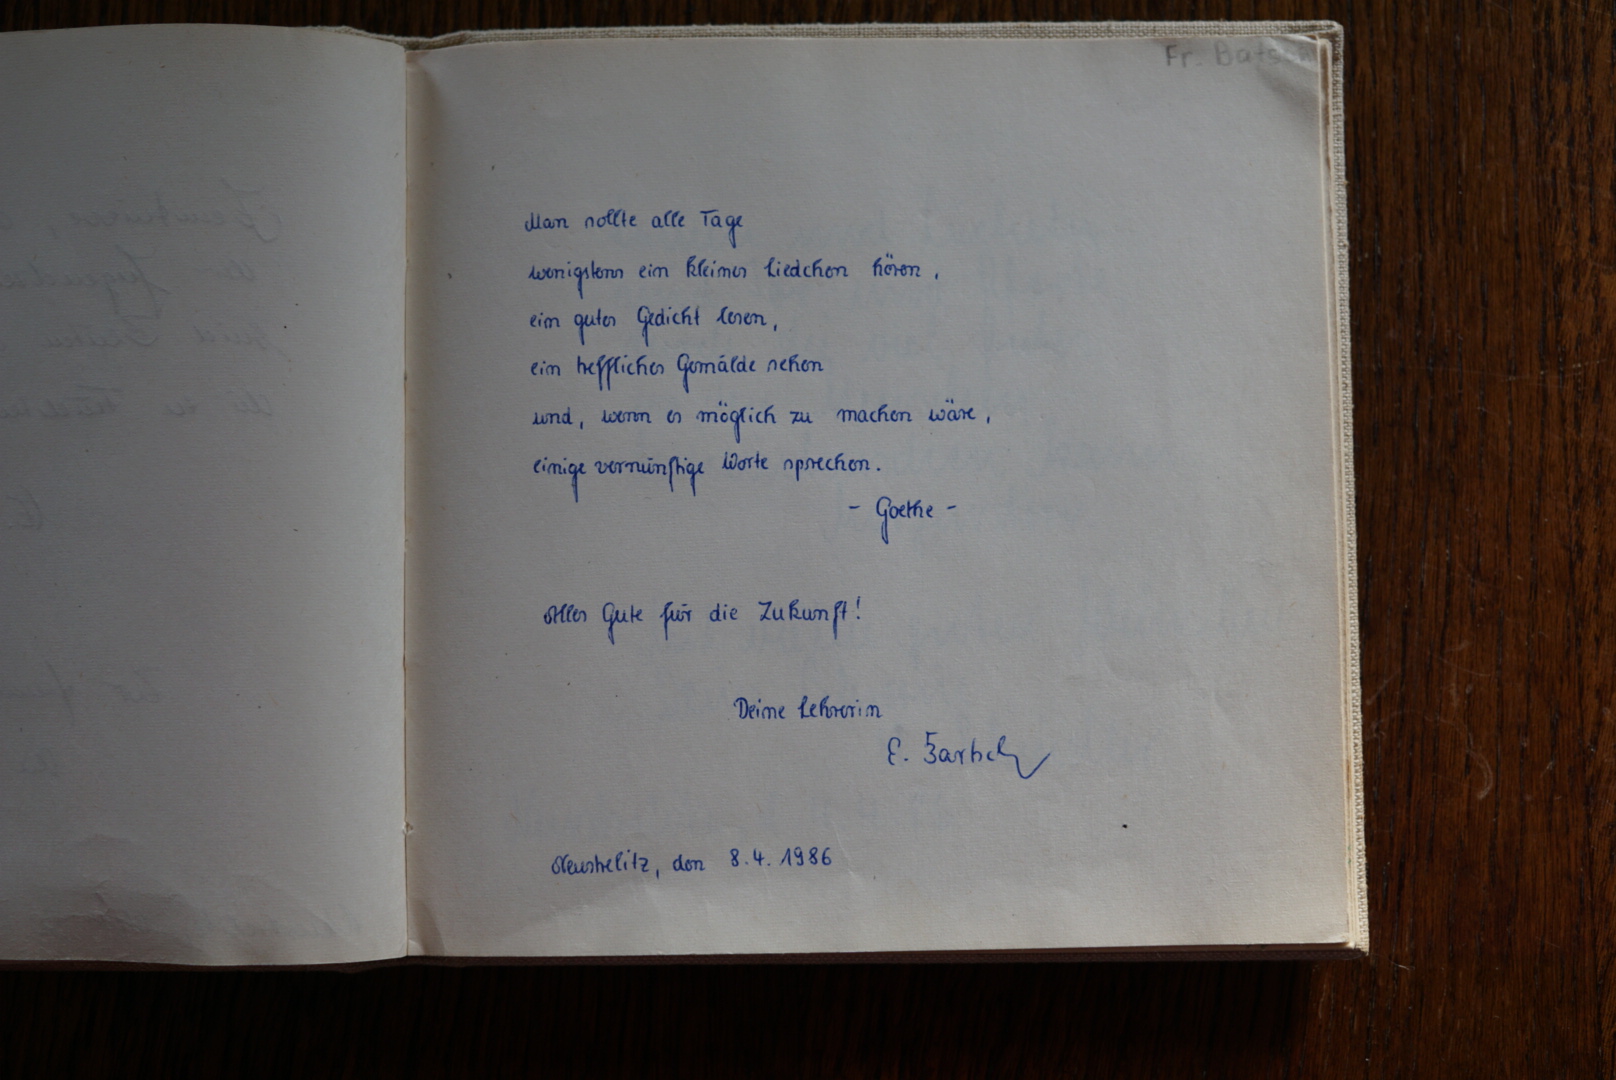 Fr. Bats
Man sollte alle Tage
wenigstens ein kleines Liedchen hören,
ein gutes Gedicht lesen,
ein treffliches Gemälde sehen
und, wenn es möglich zu machen wäre,
einige vernünftige Worte sprechen.
- Goethe -
Alles Gute für die Zukunft!
Deine Lehrerin
E. Bartsch
Neustrelitz, den 8.4.1986